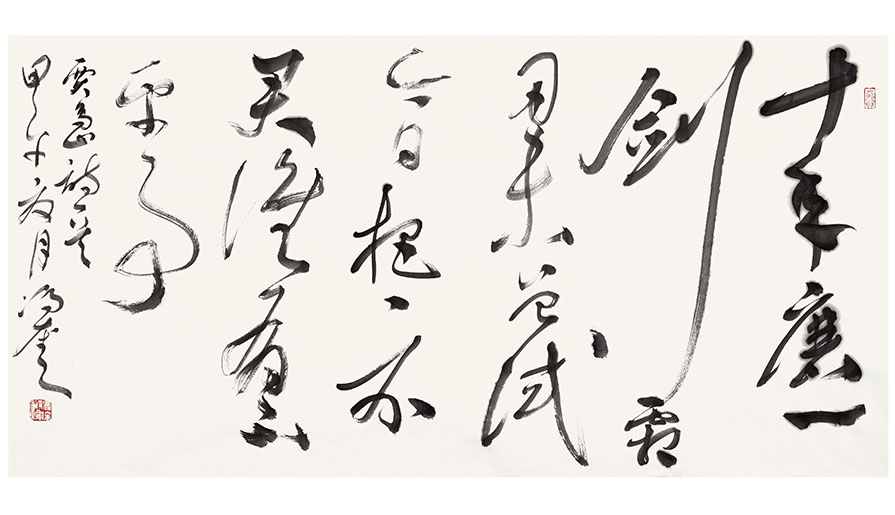 十年磨一
剑霜
刃未曾试
今日把示
君谁有不
平事
贾岛诗一首
甲午夏月冯